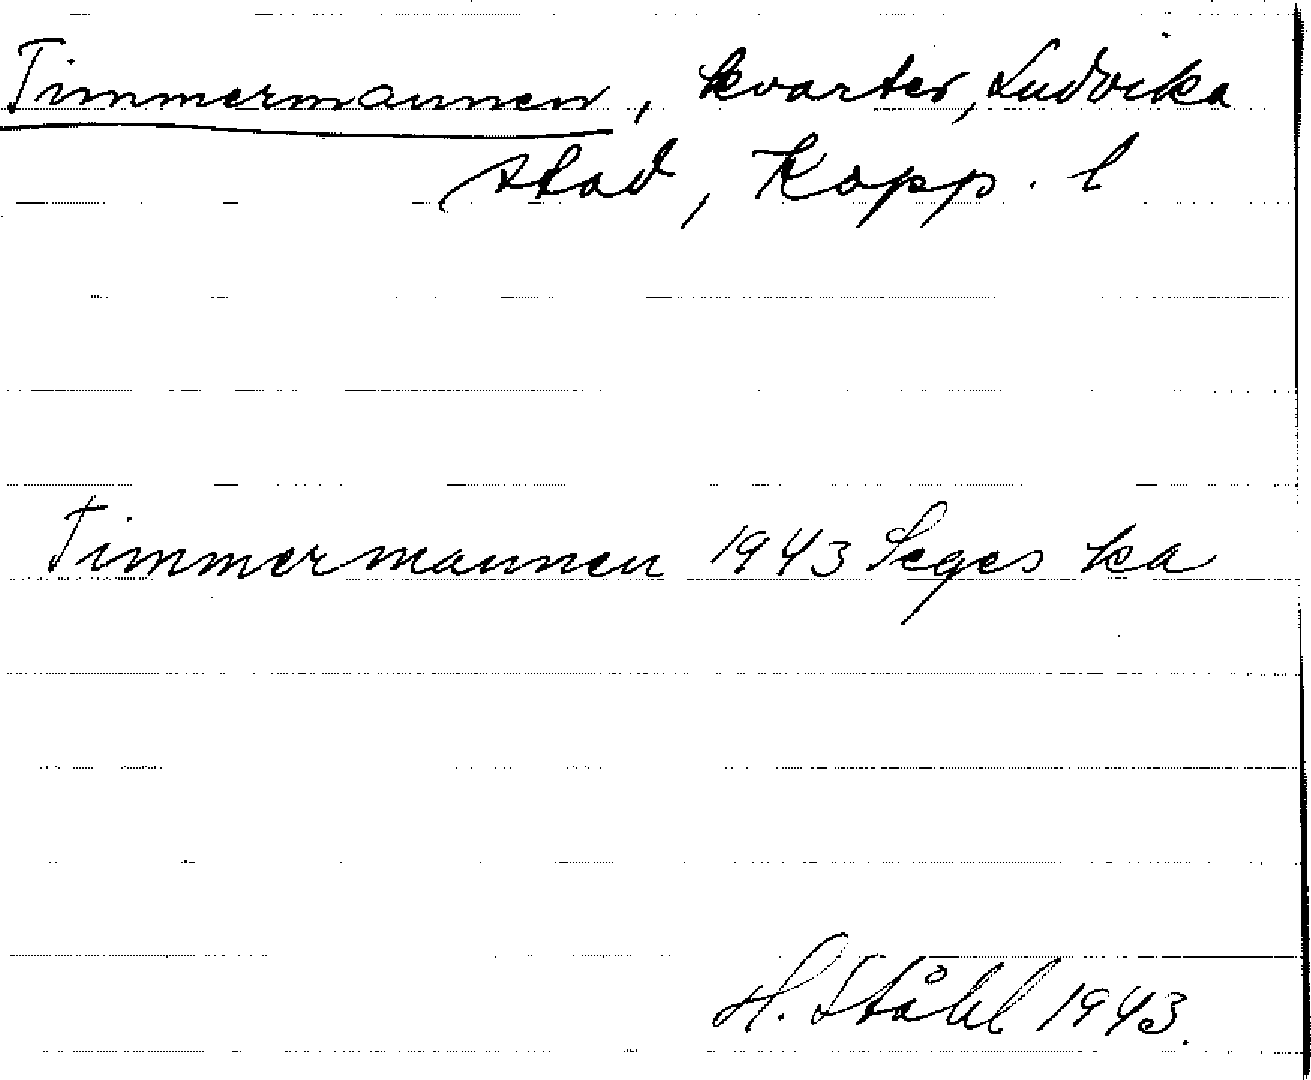 Timmermannen, kvarter, Ludvika
stad, Kopp. l
Timmermannen 1943 Seges ka
H. Ståhl 1943.